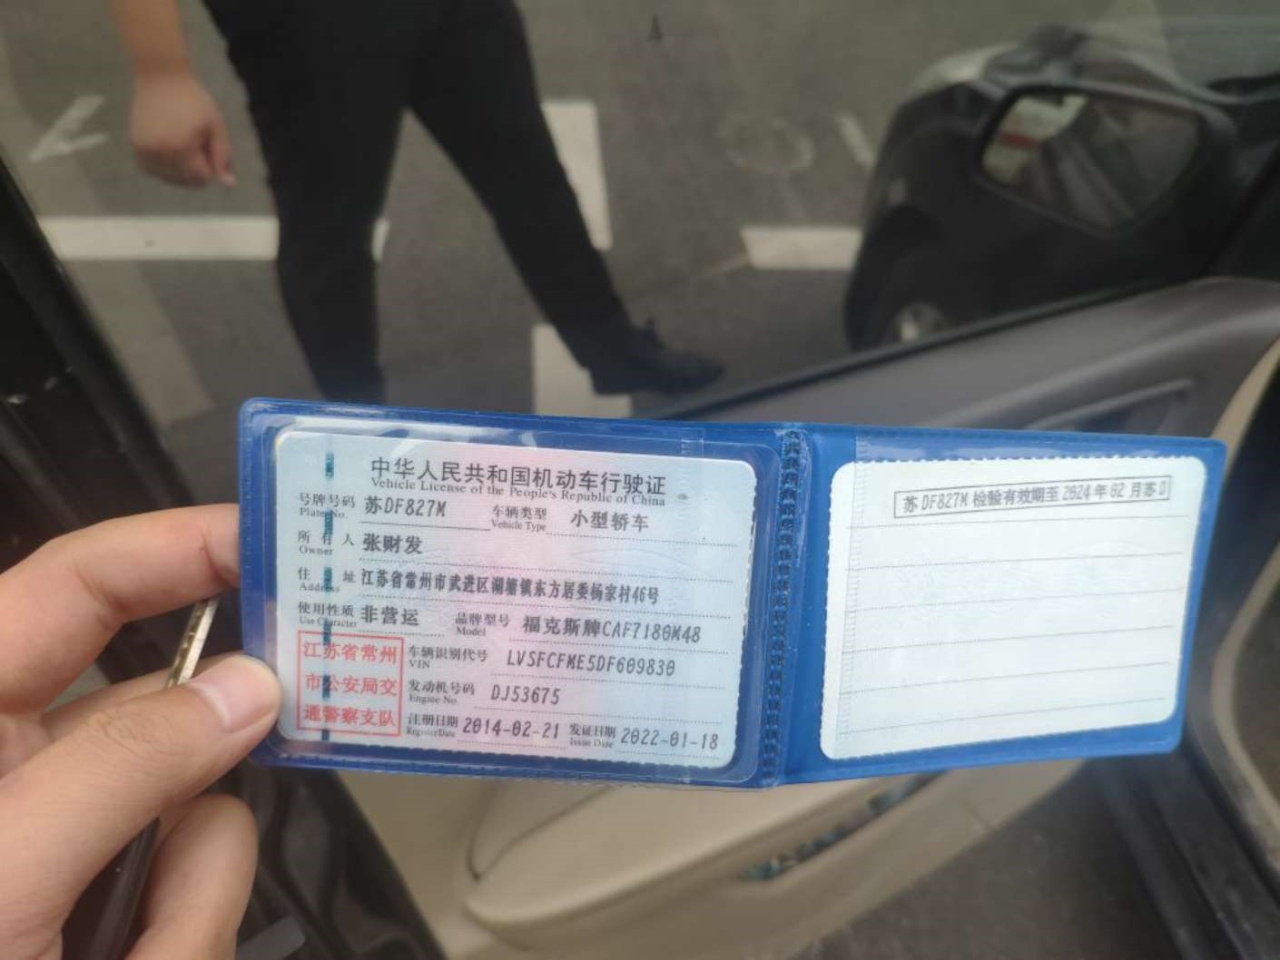 中华人民共和国机动车行驶证
Vehicle License of the People's Republic of China
号牌号码 苏DF827M 车辆类型 小型轿车
Plate No. Vehicle Type
所有人 张财发
Owner
住址 江苏省常州市武进区湖塘镇东方居委杨家村46号
Address
使用性质 非营运 品牌型号 福克斯牌CAF7180M48
Use Character Model
江苏省常州
市公安局交
通警察支队
车辆识别代号 LVSFCFME5DF609830
VIN
发动机号码 DJ53675
Engine No.
注册日期 2014-02-21 发证日期 2022-01-18
Register Date Issue Date
苏DF827M 检验有效期至2024年02月苏D